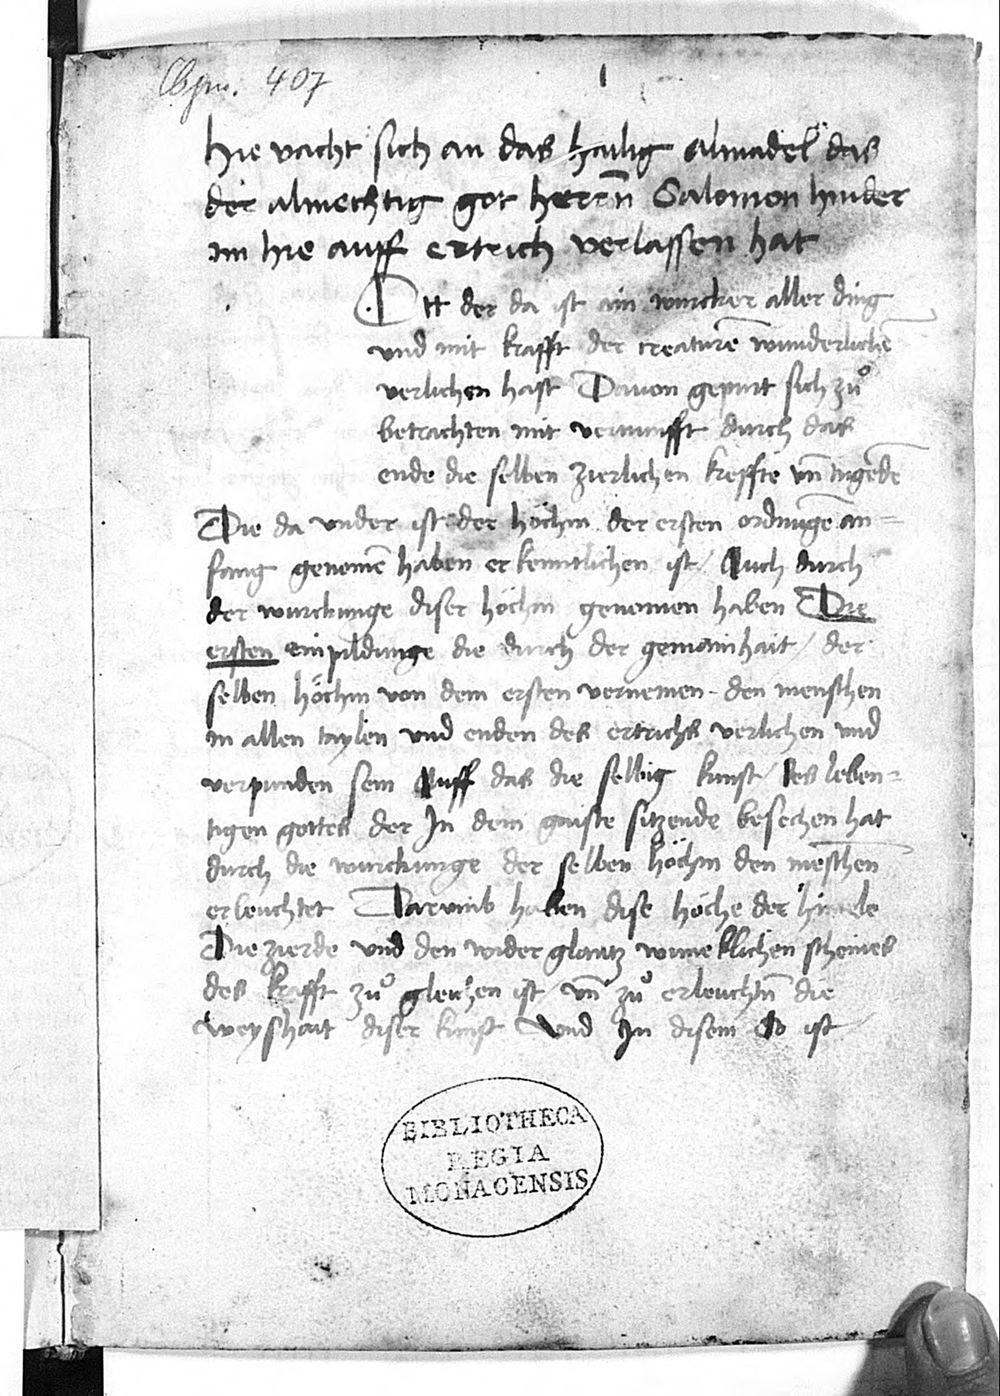 Cgm. 407
1
Hie vacht sich an das hailig Almadel das
der almechtig got herrn Salomon hinder
im hie auff ertrich verlassen hat
Ott der da ist ain wurcker aller ding
und mit krafft der creaturē wunderlichē
verlichen hast Davon gepurt sich zů
betrachten mit vernunfft durch das
ende die selben zierlichen kreffte vn̄ tugēde
Die da vnder ist der höchin der ersten ordnunge an=
fang genomē haben erkenntlichen ist / Auch durch
der wurckunge diser höchin genomen haben Die
ersten einpildunge die durch der gemainhait / der
selben höchin von dem ersten vernemen den menschen
in allen taylen vnd enden des ertrichs verlichen vnd
verpunden sein Auff das die selbig kunst / des leben=
tigen gottes der In dem gaiste sitzende besechen hat
durch die wurckunge der selben höchin den meschen
erleuchtet Darumb haben dise höche der himele
Die zierde vnd den widerglantz wuneklichen scheines
des krafft zů gleichen ist / vn̄ zů erleuchtn̄ die
weyshait diser kunst Vnd In disem So ist
BIBLIOTHECA
REGIA
MONACENSIS